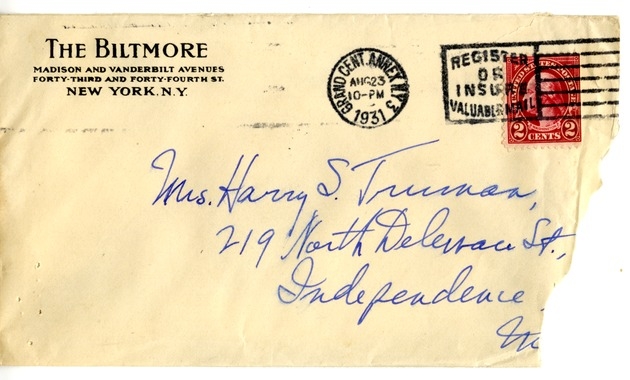 THE BILTMORE
MADISON AND VANDERBILT AVENUES
FORTY-THIRD AND FORTY-FOURTH ST.
NEW YORK. N.Y.
GRAND CENT. ANNEX N.Y. 3
AUG 23
10-PM
1931
REGISTER
OR
INSURE
VALUABLE MAIL
2 CENTS 2
Mrs. Harry S. Truman,
219 North Delewau St.,
Independence
M